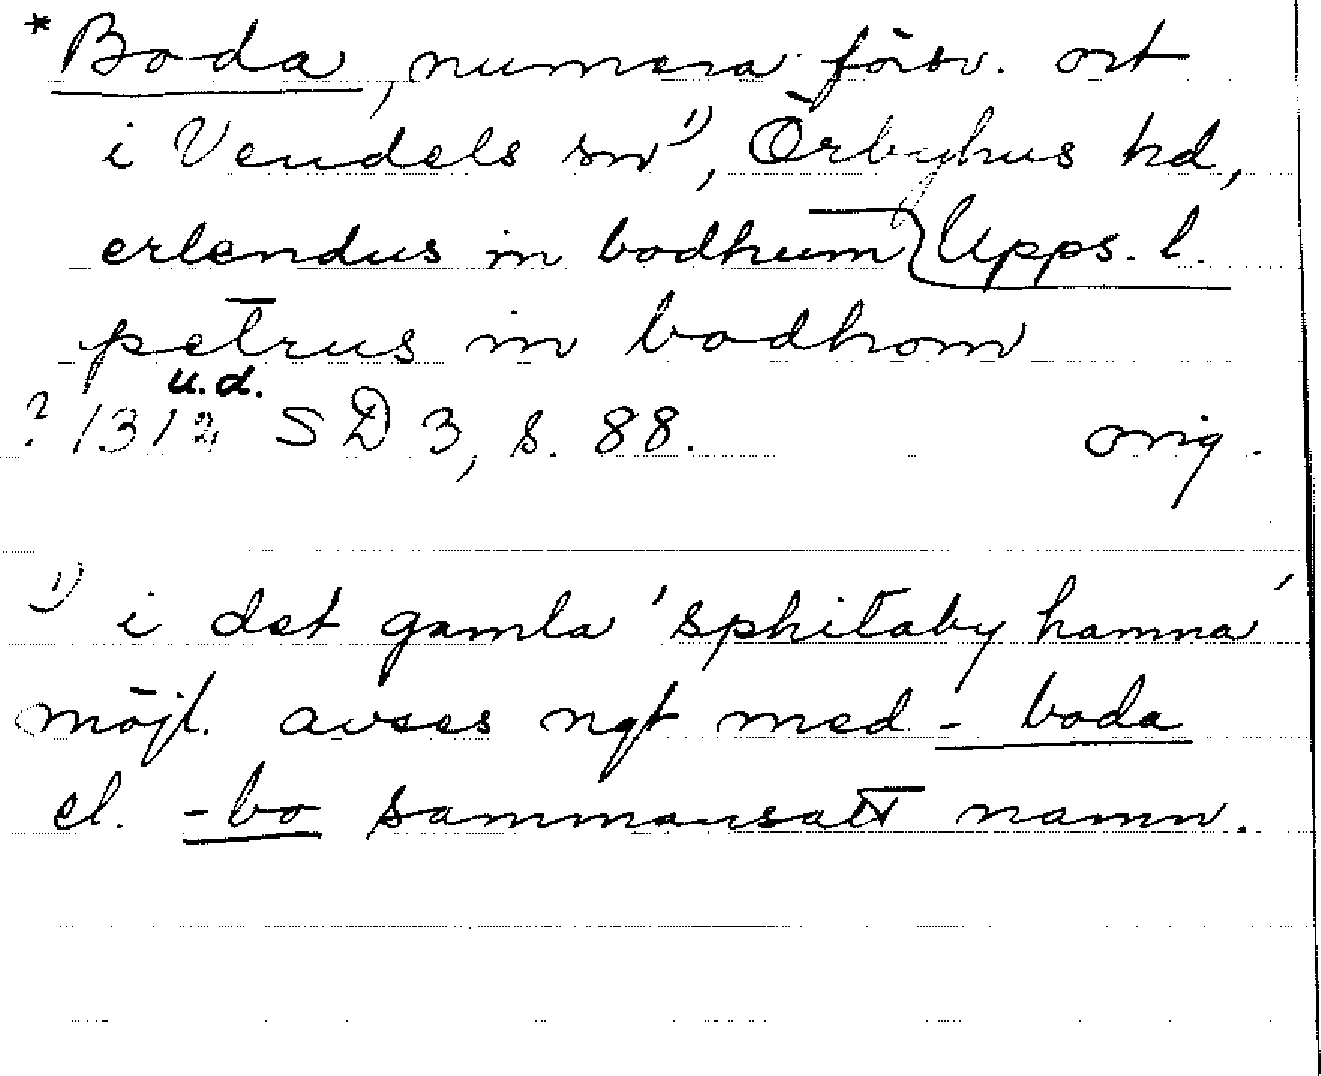 *Boda, numera försv. ort
i Vendels sn¹⁾, Örbyhus hd,
erlendus in bodhum Upps. l.
petrus in bodhom
u.d.
? 1312 SD 3, s. 88. orig.
¹⁾ i det gamla 'sphitaby hamna'
möjl. avses ngt med -boda
el. -bo sammansatt namn.